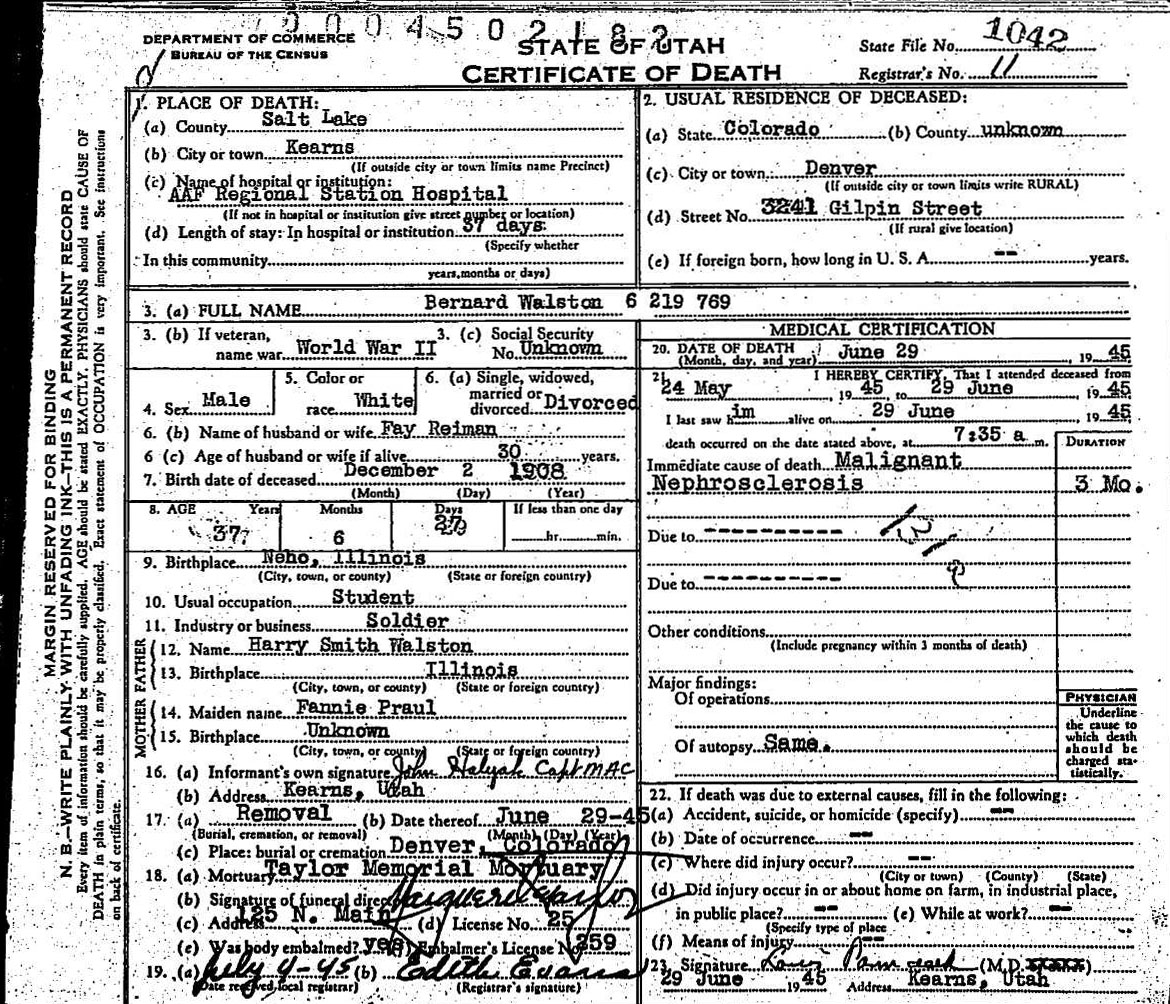 2004502182
DEPARTMENT OF COMMERCE
BUREAU OF THE CENSUS
STATE OF UTAH
CERTIFICATE OF DEATH
State File No. 1042
Registrar's No. 11
MARGIN RESERVED FOR BINDING
N. B.—WRITE PLAINLY, WITH UNFADING INK—THIS IS A PERMANENT RECORD
Every item of information should be carefully supplied. AGE should be stated EXACTLY. PHYSICIANS should state CAUSE OF
DEATH in plain terms, so that it may be properly classified. Exact statement of OCCUPATION is very important. See instructions
on back of certificate.
1. PLACE OF DEATH:
(a) County Salt Lake
(b) City or town Kearns
(If outside city or town limits name Precinct)
(c) Name of hospital or institution:
AAF Regional Station Hospital
(If not in hospital or institution give street number or location)
(d) Length of stay: In hospital or institution 37 days
(Specify whether
In this community
years, months or days)
2. USUAL RESIDENCE OF DECEASED:
(a) State Colorado (b) County unknown
(c) City or town Denver
(If outside city or town limits write RURAL)
(d) Street No. 3241 Gilpin Street
(If rural give location)
(e) If foreign born, how long in U. S. A. -- years.
3. (a) FULL NAME Bernard Walston 6 219 769
3. (b) If veteran, name war World War II 3. (c) Social Security No. Unknown
4. Sex Male 5. Color or race White 6. (a) Single, widowed, married or divorced Divorced
6. (b) Name of husband or wife Fay Reiman
6 (c) Age of husband or wife if alive 30 years.
7. Birth date of deceased December 2 1908
(Month) (Day) (Year)
8. AGE Years Months Days If less than one day
37 6 27 hr. min.
9. Birthplace Neho, Illinois
(City, town, or county) (State or foreign country)
10. Usual occupation Student
11. Industry or business Soldier
FATHER
12. Name Harry Smith Walston
13. Birthplace Illinois
(City, town, or county) (State or foreign country)
MOTHER
14. Maiden name Fannie Praul
15. Birthplace Unknown
(City, town, or county) (State or foreign country)
16. (a) Informant's own signature John Capt MAC
(b) Address Kearns, Utah
17. (a) Removal (b) Date thereof June 29-45
(Burial, cremation, or removal) (Month) (Day) (Year)
(c) Place: burial or cremation Denver, Colorado
18. (a) Mortuary Taylor Memorial Mortuary
(b) Signature of funeral director
(c) Address 125 N. Main (d) License No. 25
(e) Was body embalmed? yes Embalmer's License No. 259
19. (a) July 4-45 (b) Edith Evans
(Date received local registrar) (Registrar's signature)
MEDICAL CERTIFICATION
20. DATE OF DEATH June 29 19 45
(Month, day, and year)
21. I HEREBY CERTIFY, That I attended deceased from
24 May, 19 45 to 29 June 19 45
I last saw him alive on 29 June 19 45
death occurred on the date stated above, at 7:35 a m.
DURATION
Immediate cause of death Malignant
Nephrosclerosis 3 Mo.
Due to ----------
Due to ----------
Other conditions
(Include pregnancy within 3 months of death)
Major findings:
Of operations
Of autopsy Same.
PHYSICIAN
Underline
the cause to
which death
should be
charged sta-
tistically.
22. If death was due to external causes, fill in the following:
(a) Accident, suicide, or homicide (specify) --
(b) Date of occurrence --
(c) Where did injury occur? --
(City or town) (County) (State)
(d) Did injury occur in or about home on farm, in industrial place,
in public place? -- (e) While at work? --
(Specify type of place
(f) Means of injury --
23. Signature (M.D.)
29 June 19 45 Address Kearns, Utah